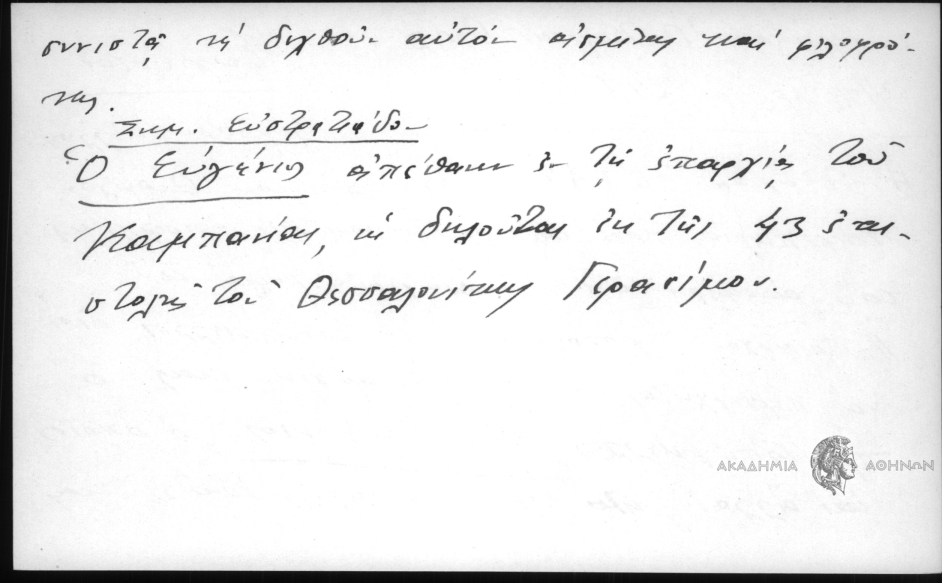 συνιστᾷ νά δεχθοῦν αὐτόν ἀσμένως καί φιλοφρό-
νως.
Σημ. Εὐστρατιάδου
Ὁ Εὐγένιος ἀπέθανεν ἐν τῇ ἐπαρχίᾳ τοῦ
Καμπανίας, ὡς δηλοῦται ἐκ τῆς 43 ἐπι-
στολῆς τοῦ Θεσσαλονίκης Γερασίμου.
ΑΚΑΔΗΜΙΑ ΑΘΗΝΩΝ